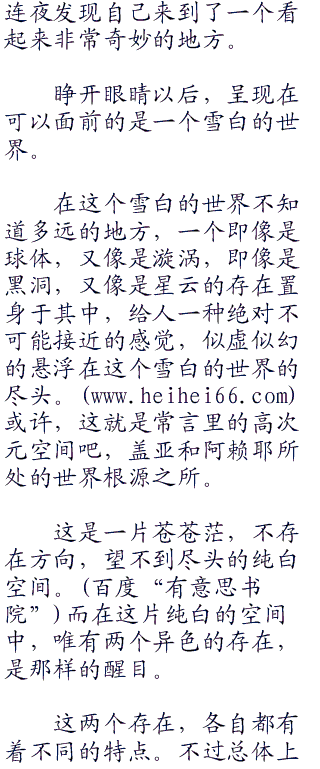 连夜发现自己来到了一个看
起来非常奇妙的地方。
睁开眼睛以后，呈现在
可以面前的是一个雪白的世
界。
在这个雪白的世界不知
道多远的地方，一个即像是
球体，又像是漩涡，即像是
黑洞，又像是星云的存在置
身于其中，给人一种绝对不
可能接近的感觉，似虚似幻
的悬浮在这个雪白的世界的
尽头。(www.heihei66.com)
或许，这就是常言里的高次
元空间吧，盖亚和阿赖耶所
处的世界根源之所。
这是一片苍苍茫，不存
在方向，望不到尽头的纯白
空间。(百度“有意思书
院”)而在这片纯白的空间
中，唯有两个异色的存在，
是那样的醒目。
这两个存在，各自都有
着不同的特点。不过总体上